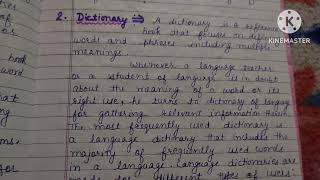 2. Dictionary ⇒ A dictionary is a reference
book that focuses on
words and phrases including multiple
meanings.
Whenever a language teacher
or a student of language is in doubt
about the meaning of a word or its
right use, he turns to dictionary of language
for gathering relevant information
The most frequently used dictionary is
a language dictionary that includes the
majority of frequently used words
in a language. Language dictionaries are
made for different types of users
book
that
for
KINEMASTER